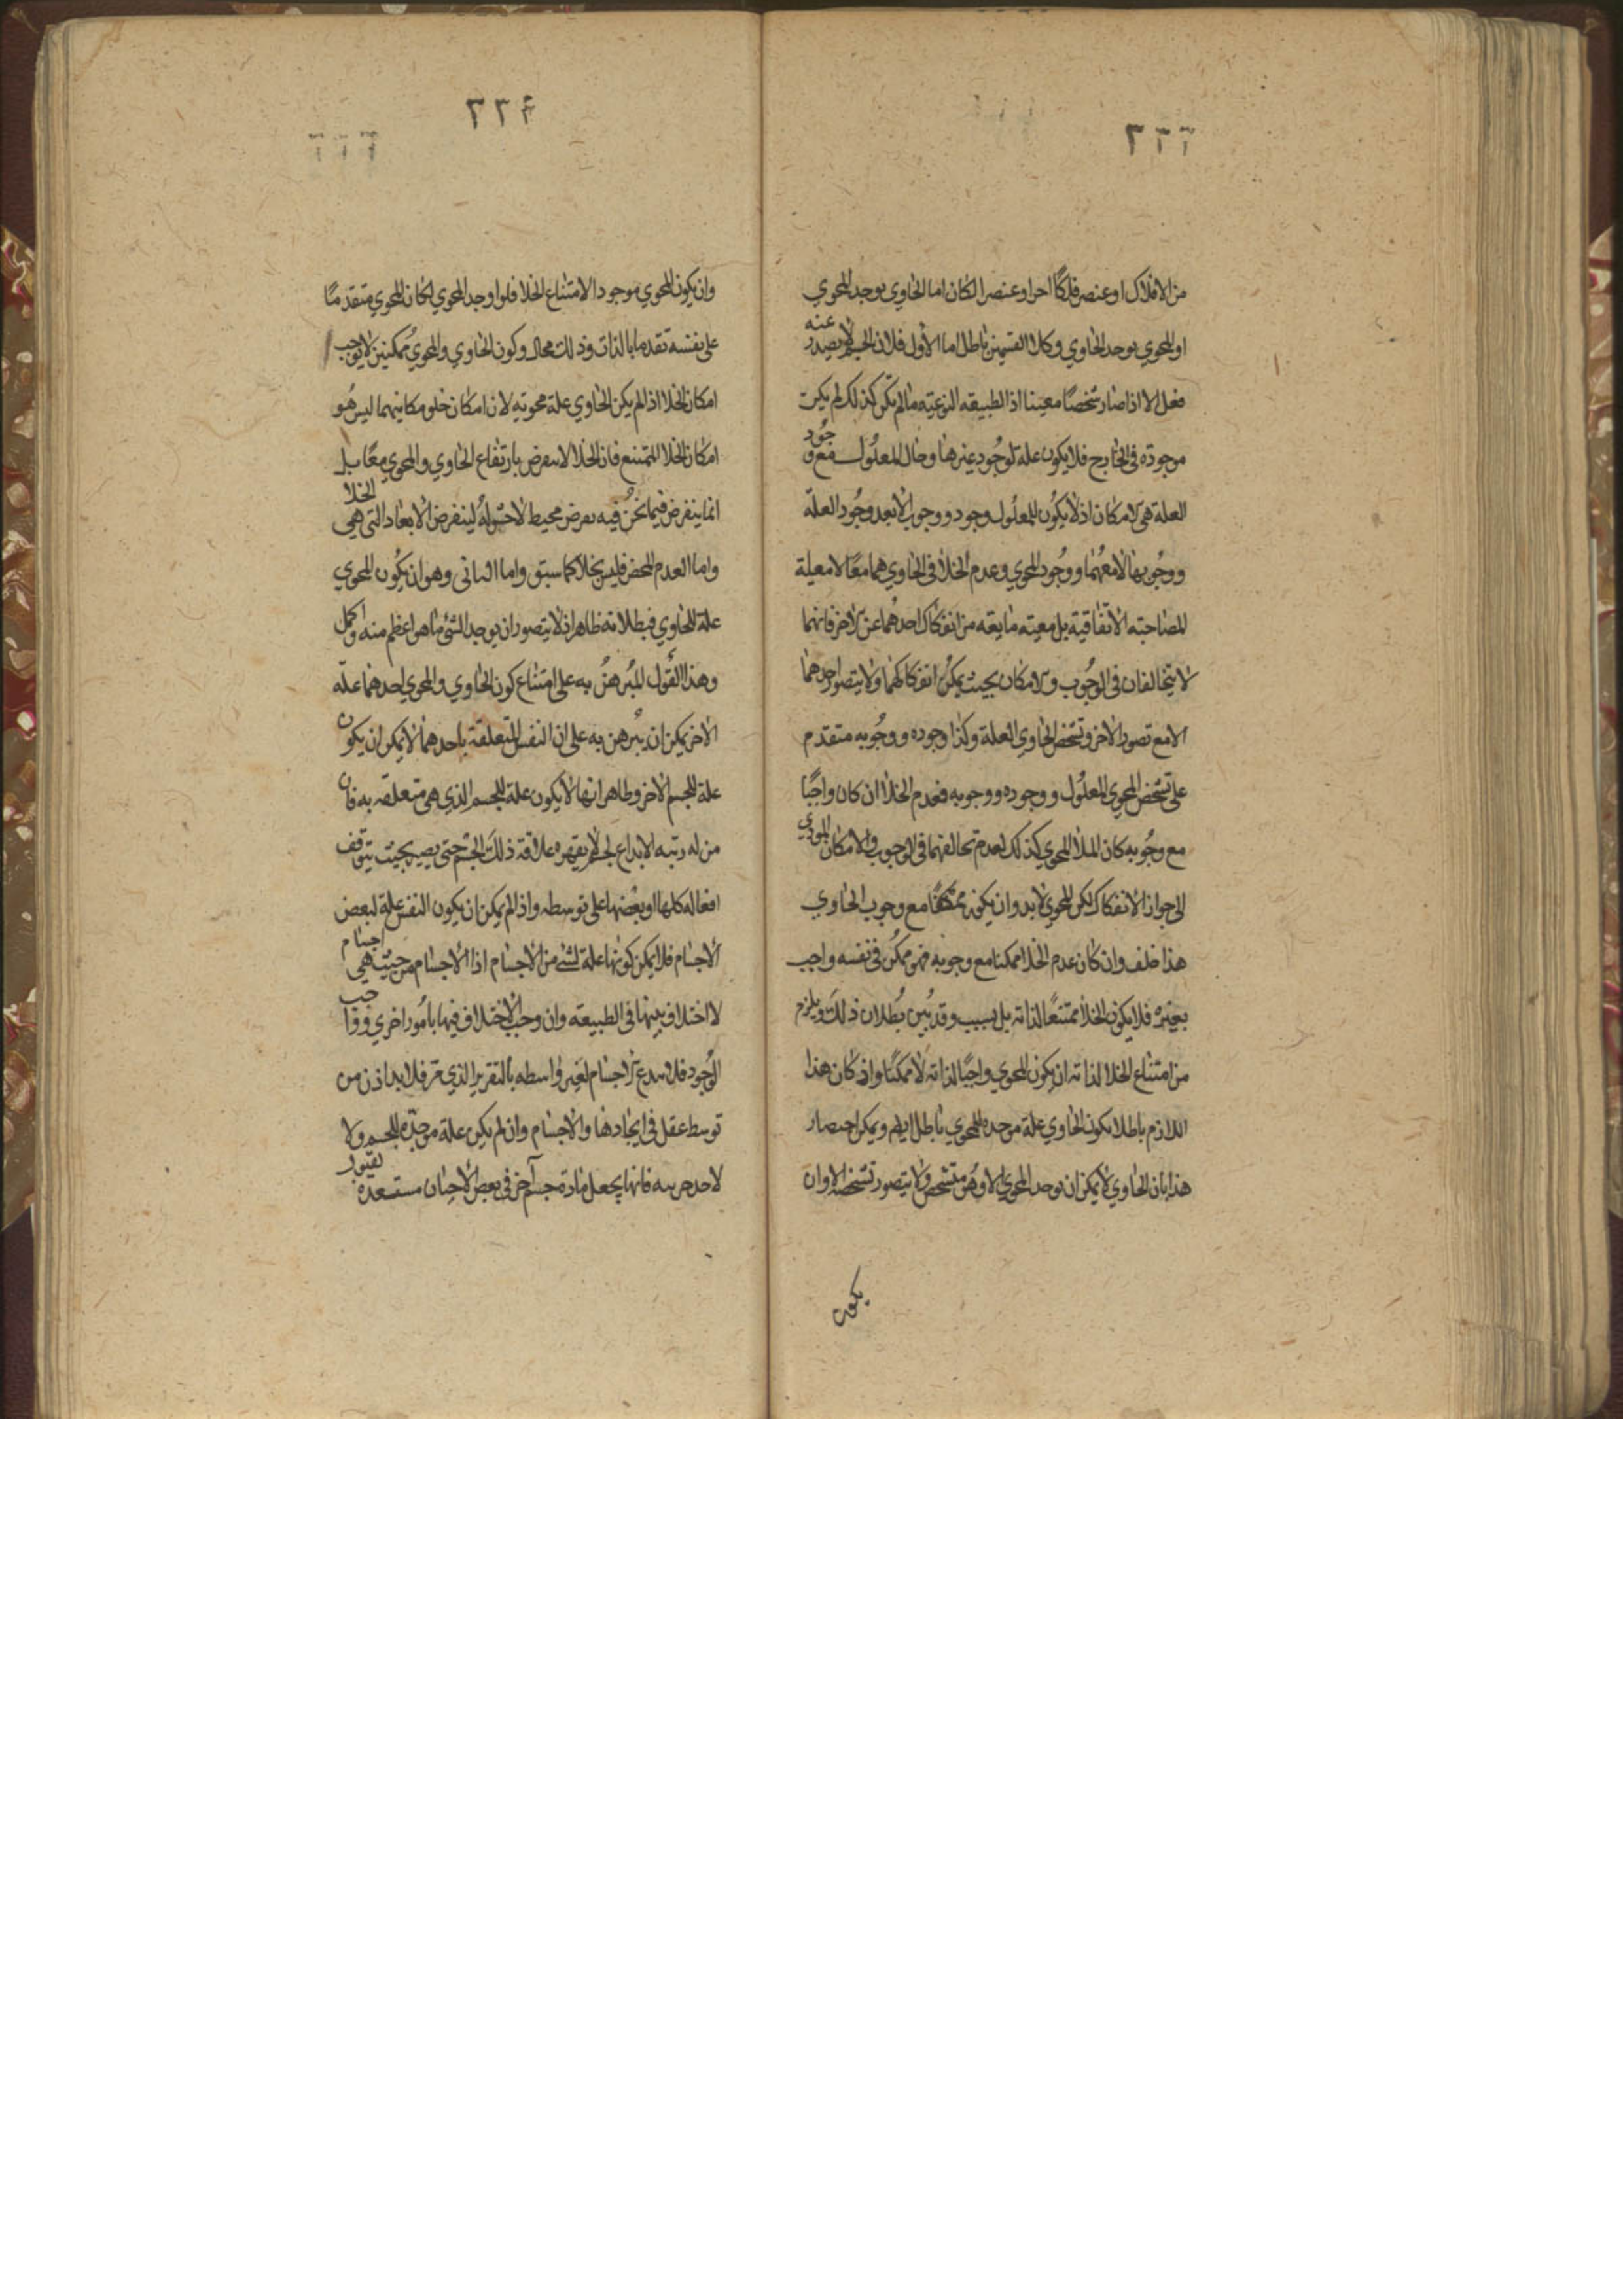 ٢٢٢
من الافلاك او عنصر فلكًا اخر او عنصرا لكان اما الحاوي يوجد المحوي
او المحوي يوجد الحاوي وكلا القسمين باطل اما الأول فلان الجسم لا يصدر عنه
فعل الا اذا صار شخصًا معينا اذ الطبيعة النوعية ما لم تكن كذلك لم يكن
موجودة في الخارج فلا يكون علة لوجود غيرها وحال المعلول مع وجود
العلة هي الامكان اذ لا يكون للمعلول وجود ووجوب الا بعد وجود العلة
ووجوبها لا معهما ووجود المحوي وعدم الخلا في الحاوي هما معًا لا معية
المصاحبة الاتفاقية بل معية مانعة من انفكاك احدهما عن الاخر فانهما
لا يتخالفان في الوجوب والامكان بحيث يمكن انفكاكهما ولا يتصور احدهما
الا مع تصور الاخر وتشخص الحاوي العلة وكذا وجوده ووجوبه متقدم
على تشخص المحوي المعلول ووجوده ووجوبه فعدم الخلا ان كان واجبًا
مع وجوبه كان الملا المحوي كذلك لعدم تخالفهما في الوجوب والامكان المودي
الى جواز الانفكاك لكن المحوي لابد وان يكون ممكنًا مع وجوب الحاوي
هذا خلف وان كان عدم الخلا ممكنا مع وجوبه فهو ممكن في نفسه واجب
بغيره فلا يكون الخلا ممتنعًا لذاته بل بسبب وقد بُيّن بطلان ذلك ويلزم
من امتناع الخلا لذاته ان يكون المحوي واجبًا لذاته لا ممكنًا واذ كان هذا
اللازم باطلا فكون الحاوي علة موجدة للمحوي باطل ايضا ويمكن اختصار
هذا بان الحاوي لا يمكن ان يوجد المحوي الا وهو متشخص ولا يتصور تشخصه الا وان
يكون
٢٢٤
وان يكون المحوي موجودا لامتناع الخلا فلو اوجد المحوي لكان المحوي متقدمًا
على نفسه تقدما بالذات وذلك محال وكون الحاوي والمحوي ممكنين لا يوجب
امكان الخلا اذا لم يكن الحاوي علة محويه لان امكان خلو مكانيهما ليس هو
امكان الخلا الممتنع فان الخلا لا ينفرض بارتفاع الحاوي والمحوي معًا بل
انما ينفرض فيما نحن فيه بفرض محيط لا حشو له لينفرض الابعاد التي هي الخلا
واما العدم المحض فليس بخلا كما سبق واما الثاني وهو ان يكون المحوي
علة الحاوي فبطلانه ظاهر اذ لا يتصور ان يوجد الشي ما هو اعظم منه واكمل
وهذا القول المبرهن به على امتناع كون الحاوي والمحوي احدهما علة
الاخر يمكن ان يبرهن به على ان النفس المتعلقة باحدهما لا يمكن ان يكون
علة للجسم الاخر وظاهر انها لا يكون علة للجسم الذي هي متعلقه به فان
من له رتبه الابداع لجسم لا يقهره علاقة ذلك الجسم حتى يصير بحيث يتوقف
افعاله كلها او بعضها على توسطه واذ لم يمكن ان يكون النفس علة لبعض
الاجسام فلا يمكن كونها علة لشي من الاجسام اذ الاجسام من حيث هي اجسام
لا اختلاف بينها في الطبيعة وان وجب الاختلاف فيها بامور اخري وواجب
الوجود فلا يبدع الاجسام لغير واسطه بالتقرير الذي مر فلابد اذن من
توسط عقل في ايجادها والاجسام وان لم يكن علة موجدة للجسم ولا
لاحد جزئيه فانها يجعل مادة جسم آخر في بعض الاحيان مستعدة لقبول